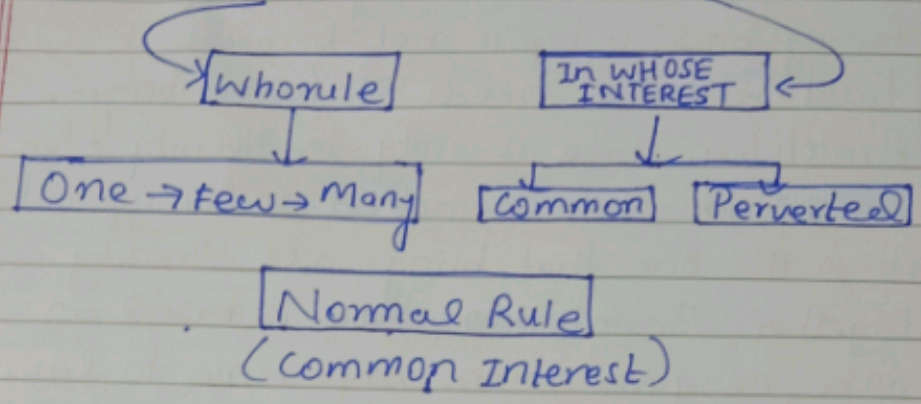 Whorule
In WHOSE
INTEREST
One → Few → Many
Common
Perverted
Normal Rule
(Common Interest)